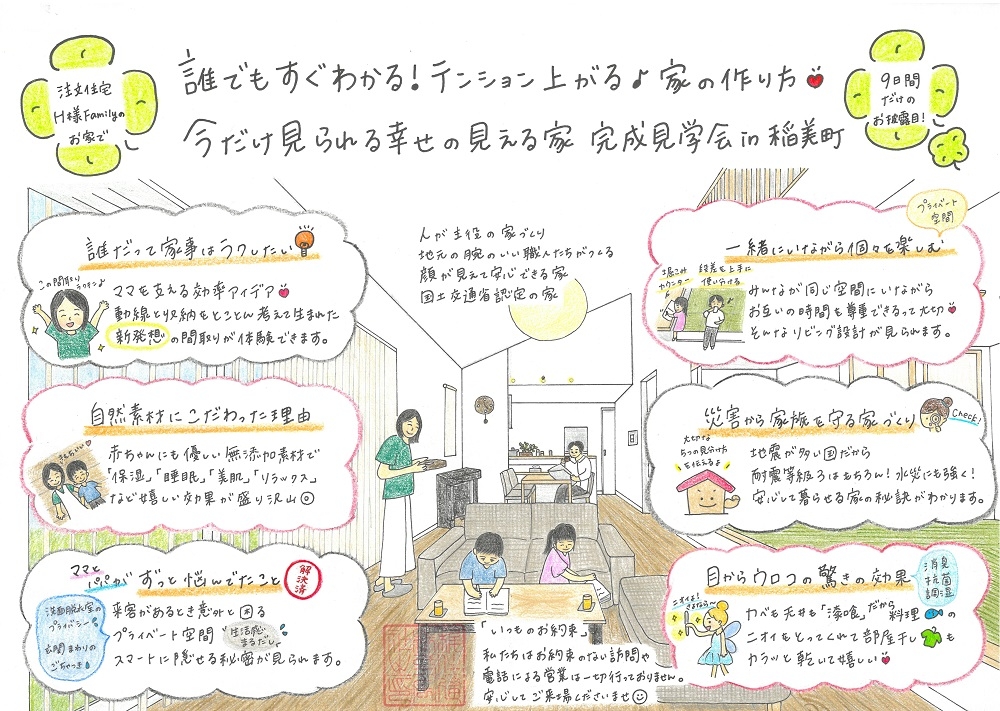 注文住宅
H様Familyの
お家で
誰でもすぐわかる！テンション上がる♪家の作り方
今だけ見られる幸せの見える家 完成見学会 in 稲美町
9日間
だけの
お披露目！
人が主役の家づくり
地元の腕のいい職人たちがつくる
顔が見えて安心できる家
国土交通省認定の家
誰だって家事はラクしたい
この間取り
ラクチン♪
ママを支える効率アイデア
動線と収納をとことん考えて生まれた
新発想の間取りが体験できます。
自然素材にこだわった理由
きもちいい
赤ちゃんにも優しい無添加素材で
「保湿」「睡眠」「美肌」「リラックス」
など嬉しい効果が盛り沢山◎
ママと
パパが
ずっと悩んでたこと
解決済
洗面脱衣室の
プライバシー
玄関まわりの
ごちゃつき
来客があるとき意外と困る
プライベート空間 "生活感
まるだし"
スマートに隠せる秘密が見られます。
プライベート
空間
一緒にいながら個々を楽しむ
カウンター
段差を上手に
使い分ける
みんなが同じ空間にいながら
お互いの時間を尊重できるって大切
そんなリビング設計が見られます。
災害から家族を守る家づくり
Check!
大切な
5つの見分け方
を伝えるよ
地震が多い国だから
耐震等級3はもちろん！水災にも強く！
安心して暮らせる家の秘訣がわかります。
目からウロコの驚きの効果
消臭
抗菌
調湿
ニオイよ！
さよなら〜
カベも天井も「漆喰」だから 料理の
ニオイをとってくれて部屋干しも
カラッと乾いて嬉しい
「いつものお約束」
私たちはお約束のない訪問や
電話による営業は一切行っておりません。
安心してご来場くださいませ